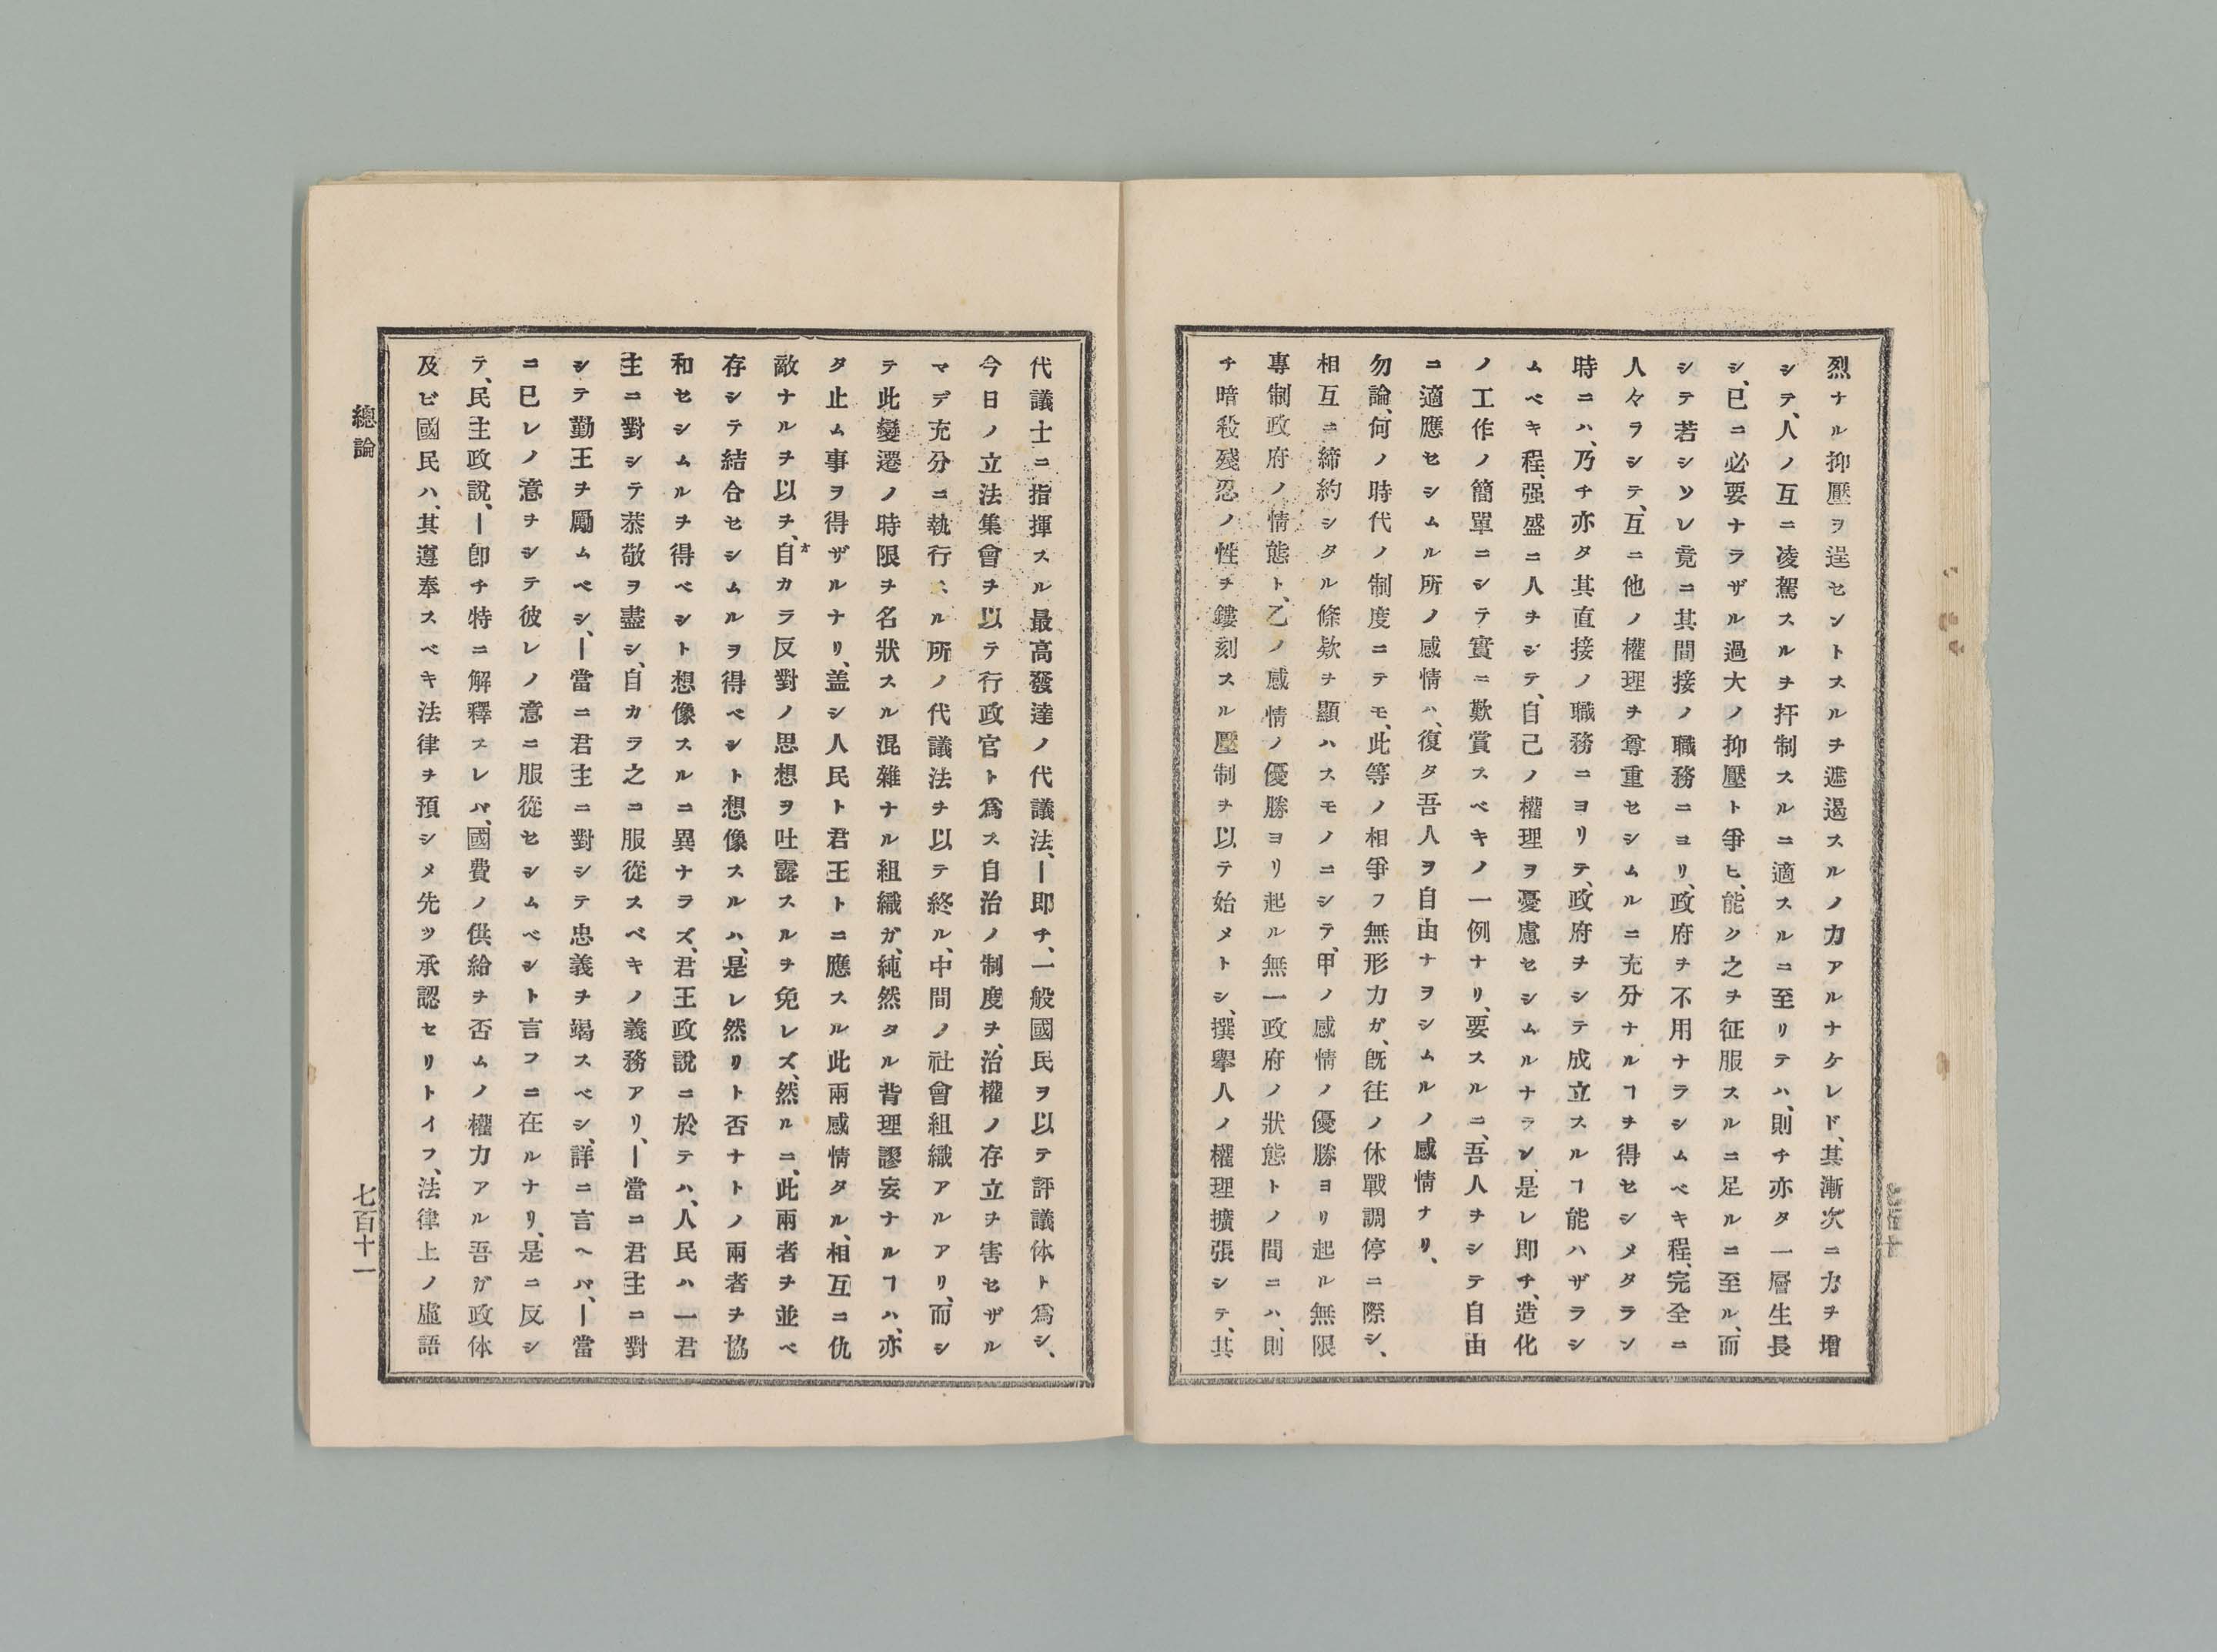 烈ナル抑壓ヲ逞セントスルヲ遮遏スルノ力アルナケレド、其漸次ニ力ヲ增
シテ、人ノ互ニ凌駕スルヲ扞制スルニ適スルニ至リテハ、則チ亦タ一層生長
シ、已ニ必要ナラザル過大ノ抑壓ト爭ヒ、能ク之ヲ征服スルニ足ルニ至ル、而
シテ若シソレ竟ニ其間接ノ職務ニヨリ、政府ヲ不用ナラシムベキ程、完全ニ
人々ヲシテ、互ニ他ノ權理ヲ尊重セシムルニ充分ナルヿヲ得セシメタラン
時ニハ、乃チ亦タ其直接ノ職務ニヨリテ、政府ヲシテ成立スルヿ能ハザラシ
ムベキ程、强盛ニ人ヲシテ、自己ノ權理ヲ憂慮セシムルナラン、是レ即チ、造化
ノ工作ノ簡單ニシテ實ニ歎賞スベキノ一例ナリ、要スルニ、吾人ヲシテ自由
ニ適應セシムル所ノ感情ハ、復タ吾人ヲ自由ナヲシムルノ感情ナリ、
勿論、何ノ時代ノ制度ニテモ、此等ノ相爭フ無形力ガ、既往ノ休戰調停ニ際シ、
相互ニ締約シタル條欵ヲ顯ハスモノニシテ、甲ノ感情ノ優勝ヨリ起ル無限
專制政府ノ情態ト、乙ノ感情ノ優勝ヨリ起ル無一政府ノ狀態トノ間ニハ、則
チ暗殺殘忍ノ性ヲ鏤刻スル壓制ヲ以テ始メトシ、撰擧人ノ權理擴張シテ、其
代議士ニ指揮スル最高發達ノ代議法、―即チ、一般國民ヲ以テ評議体ト爲シ、
今日ノ立法集會ヲ以テ行政官ト爲ス自治ノ制度ヲ、治權ノ存立ヲ害セザル
マデ充分ニ執行、ル所ノ代議法ヲ以テ終ル、中間ノ社會組織アルアリ、而シ
テ此變遷ノ時限ヲ名狀スル混雜ナル組織ガ、純然タル背理謬妄ナルヿハ、亦
タ止ム事ヲ得ザルナリ、盖シ人民ト君王トニ應スル此兩感情タル、相互ニ仇
敵ナルヲ以テ、自カラ反對ノ思想ヲ吐露スルヲ免レズ、然ルニ、此兩者ヲ並ベ
存シテ結合セシムルヲ得ベシト想像スルハ、是レ然リト否ナトノ兩者ヲ協
和セシムルヲ得ベシト想像スルニ異ナラズ、君王政說ニ於テハ、人民ハ一君
主ニ對シテ恭敬ヲ盡シ、自カラ之ニ服從スベキノ義務アリ、―當ニ君主ニ對
シテ勤王ヲ勵ムベシ、―當ニ君主ニ對シテ忠義ヲ竭スベシ、詳ニ言ヘバ、―當
ニ已レノ意ヲシテ彼レノ意ニ服從セシムベシト言フニ在ルナリ、是ニ反シ
テ、民主政說、―卽チ特ニ解釋スレバ、國費ノ供給ヲ否ムノ權力アル吾ガ政体
及ビ國民ハ、其遵奉スベキ法律ヲ預シメ先ツ承認セリトイフ、法律上ノ虛語
總論
七百十一